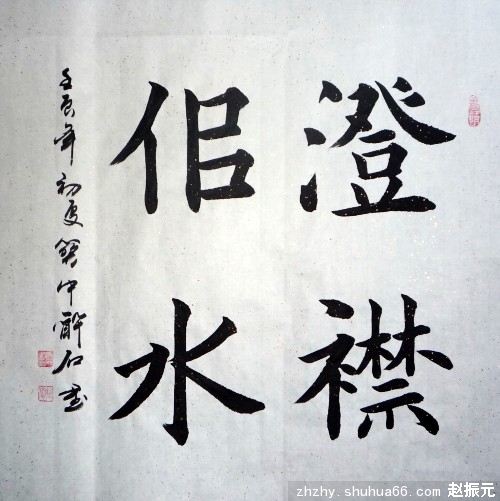 澄襟
佀水
壬辰年初夏關中醉石書
zhzhy.shuhua66.com 赵振元